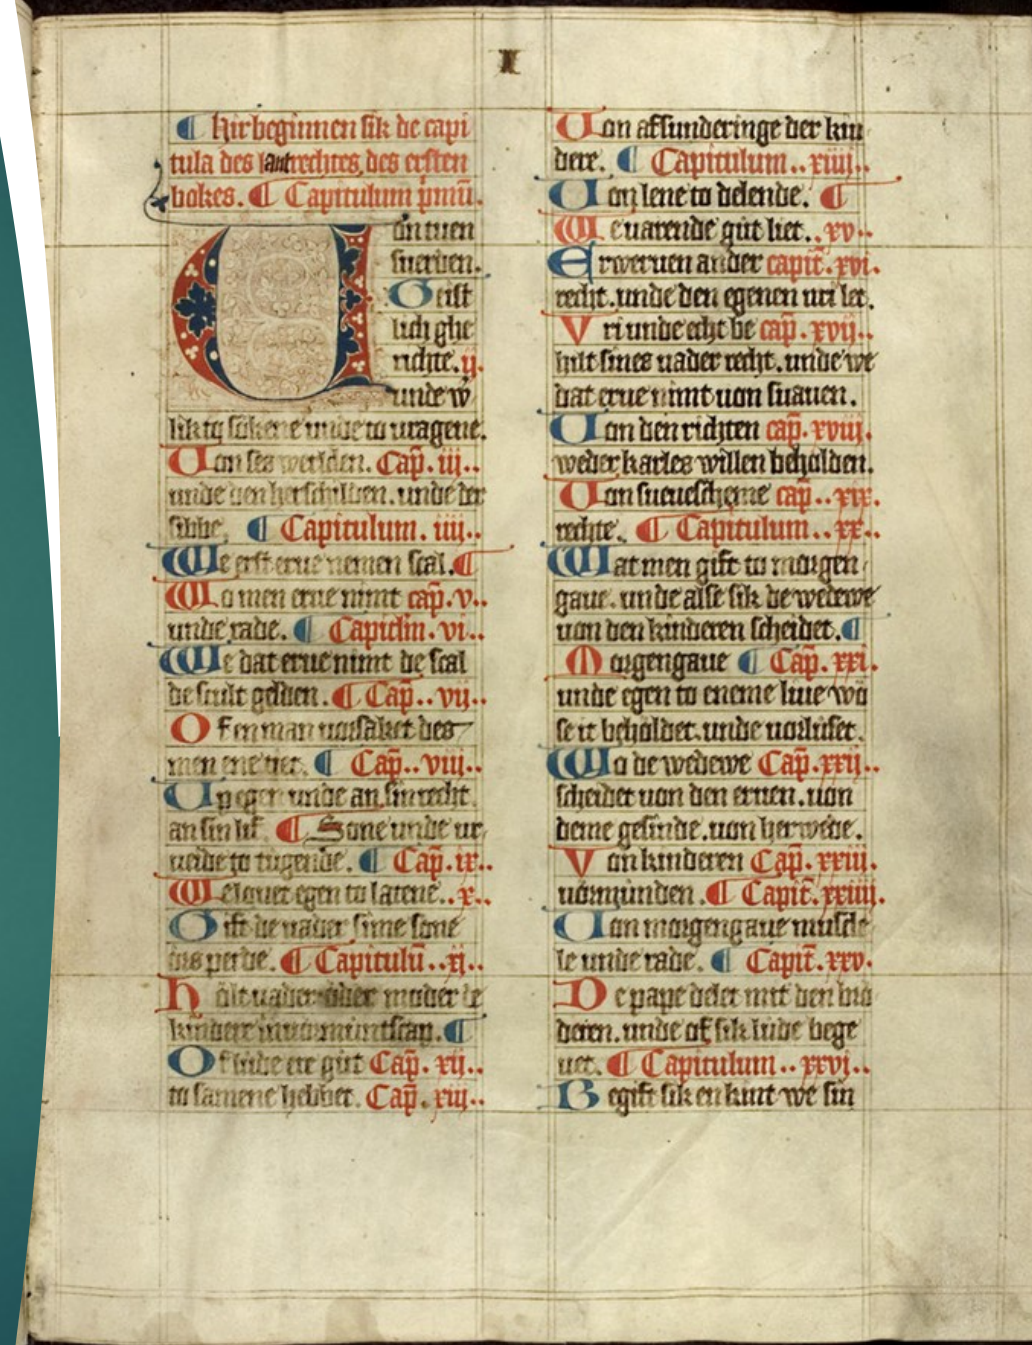 I
¶ Hir beginnen sik de capi
tula des lantrechtes des ersten
bokes. ¶ Capitulum pͥmū.
Von twen
suerden.
Geist
lich ghe
richte. ij.
unde w̄
lik to sokene unde to vragene.
Von ses werlden. Cap̄. iii..
unde den herschilden. unde der
sibbe. ¶ Capitulum. iiii..
We erst erue nemen scal. ¶
Wo men erue nimt cap̄. v..
unde rade. ¶ Capitlm̄. vi..
We dat erue nimt de scal
de scult gelden. ¶ Cap̄.. vij..
Of en man vorsaket des
men ene tiet. ¶ Cap̄.. viij..
Up egen unde an sin recht
an sin lif. ¶ Sone unde ur
veide to tugende. ¶ Cap̄. ix..
We louet egen to latene.. x..
Gift de vader sime sone
ors perde. ¶ Capitulū.. xj..
Holt vader oder moder de
kindere in vormuntscap. ¶
Of lude ere gut Cap̄. xij..
to samene hebbet. Cap̄. xiij..
Von afsunderinge der kin
dere. ¶ Capitulum.. xiiij..
Von lene to delende. ¶
We varende gut liet.. xv..
Erweruen ander capit̄. xvi.
recht. unde den egenen vri let.
Vri unde echt be cap̄. xvij..
hilt sines vader recht. unde we
dat erue nimt von suauen.
Von den richten cap̄. xviij.
weder karles willen beholden.
Von sueuescheme cap̄.. xix.
rechte. ¶ Capitulum.. xx..
Wat men gift to morgen
gaue. unde alse sik de wedewe
von den kinderen scheidet. ¶
Morgengaue ¶ Cap̄. xxi.
unde egen to eneme liue wo
se it beholdet. unde vorluset.
Wo de wedewe Cap̄. xxij..
scheidet von den eruen. von
deme gesinde. von herwede.
Von kinderen Cap̄. xxiij.
vormunden. ¶ Capit̄. xxiiij.
Von morgengaue musde
le unde rade. ¶ Capit̄. xxv.
De pape delet mit den bro
deren. unde of sik lude bege
uet. ¶ Capitulum.. xxvi..
Begift sik en kint we sin